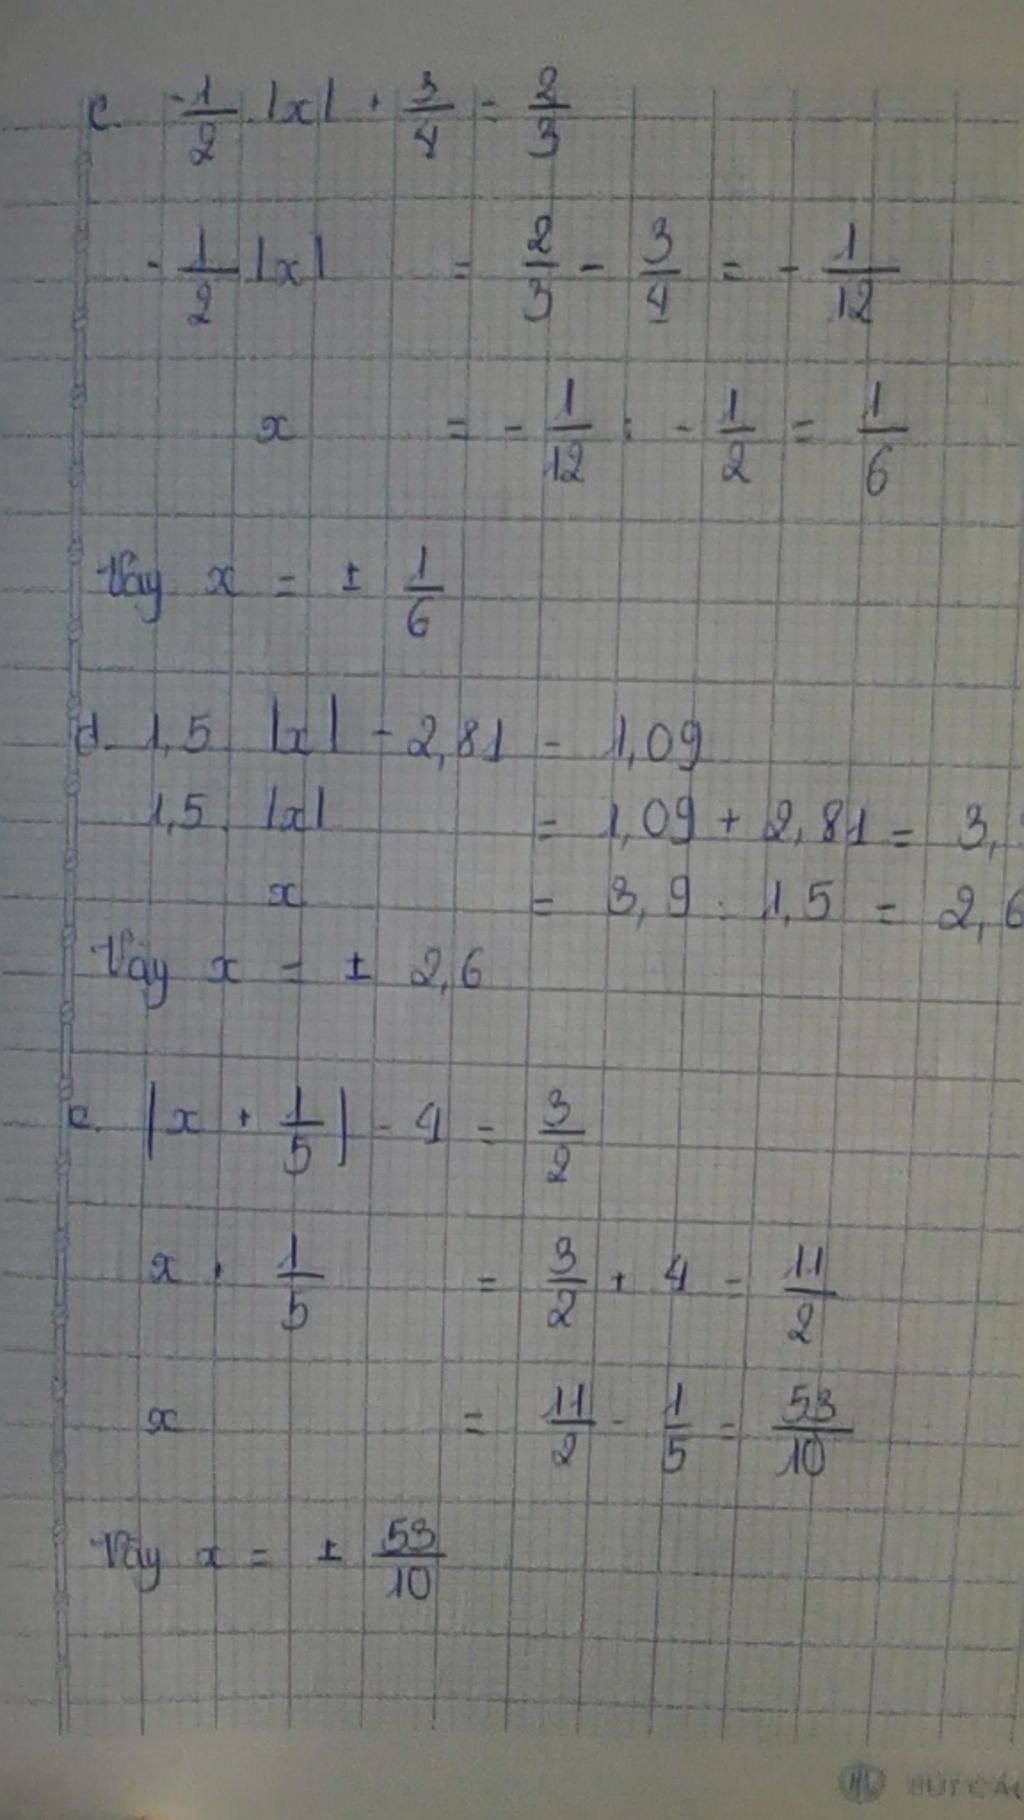 c. -1/2 . |x| + 3/4 = 2/3
- 1/2 |x| = 2/3 - 3/4 = - 1/12
x = - 1/12 : - 1/2 = 1/6
Vậy x = ± 1/6
d. 1,5 |x| - 2,81 = 1,09
1,5 . |x| = 1,09 + 2,81 = 3,
x = 3,9 : 1,5 = 2,6
Vậy x = ± 2,6
e. |x + 1/5| - 4 = 3/2
x + 1/5 = 3/2 + 4 = 11/2
x = 11/2 - 1/5 = 53/10
Vậy x = ± 53/10